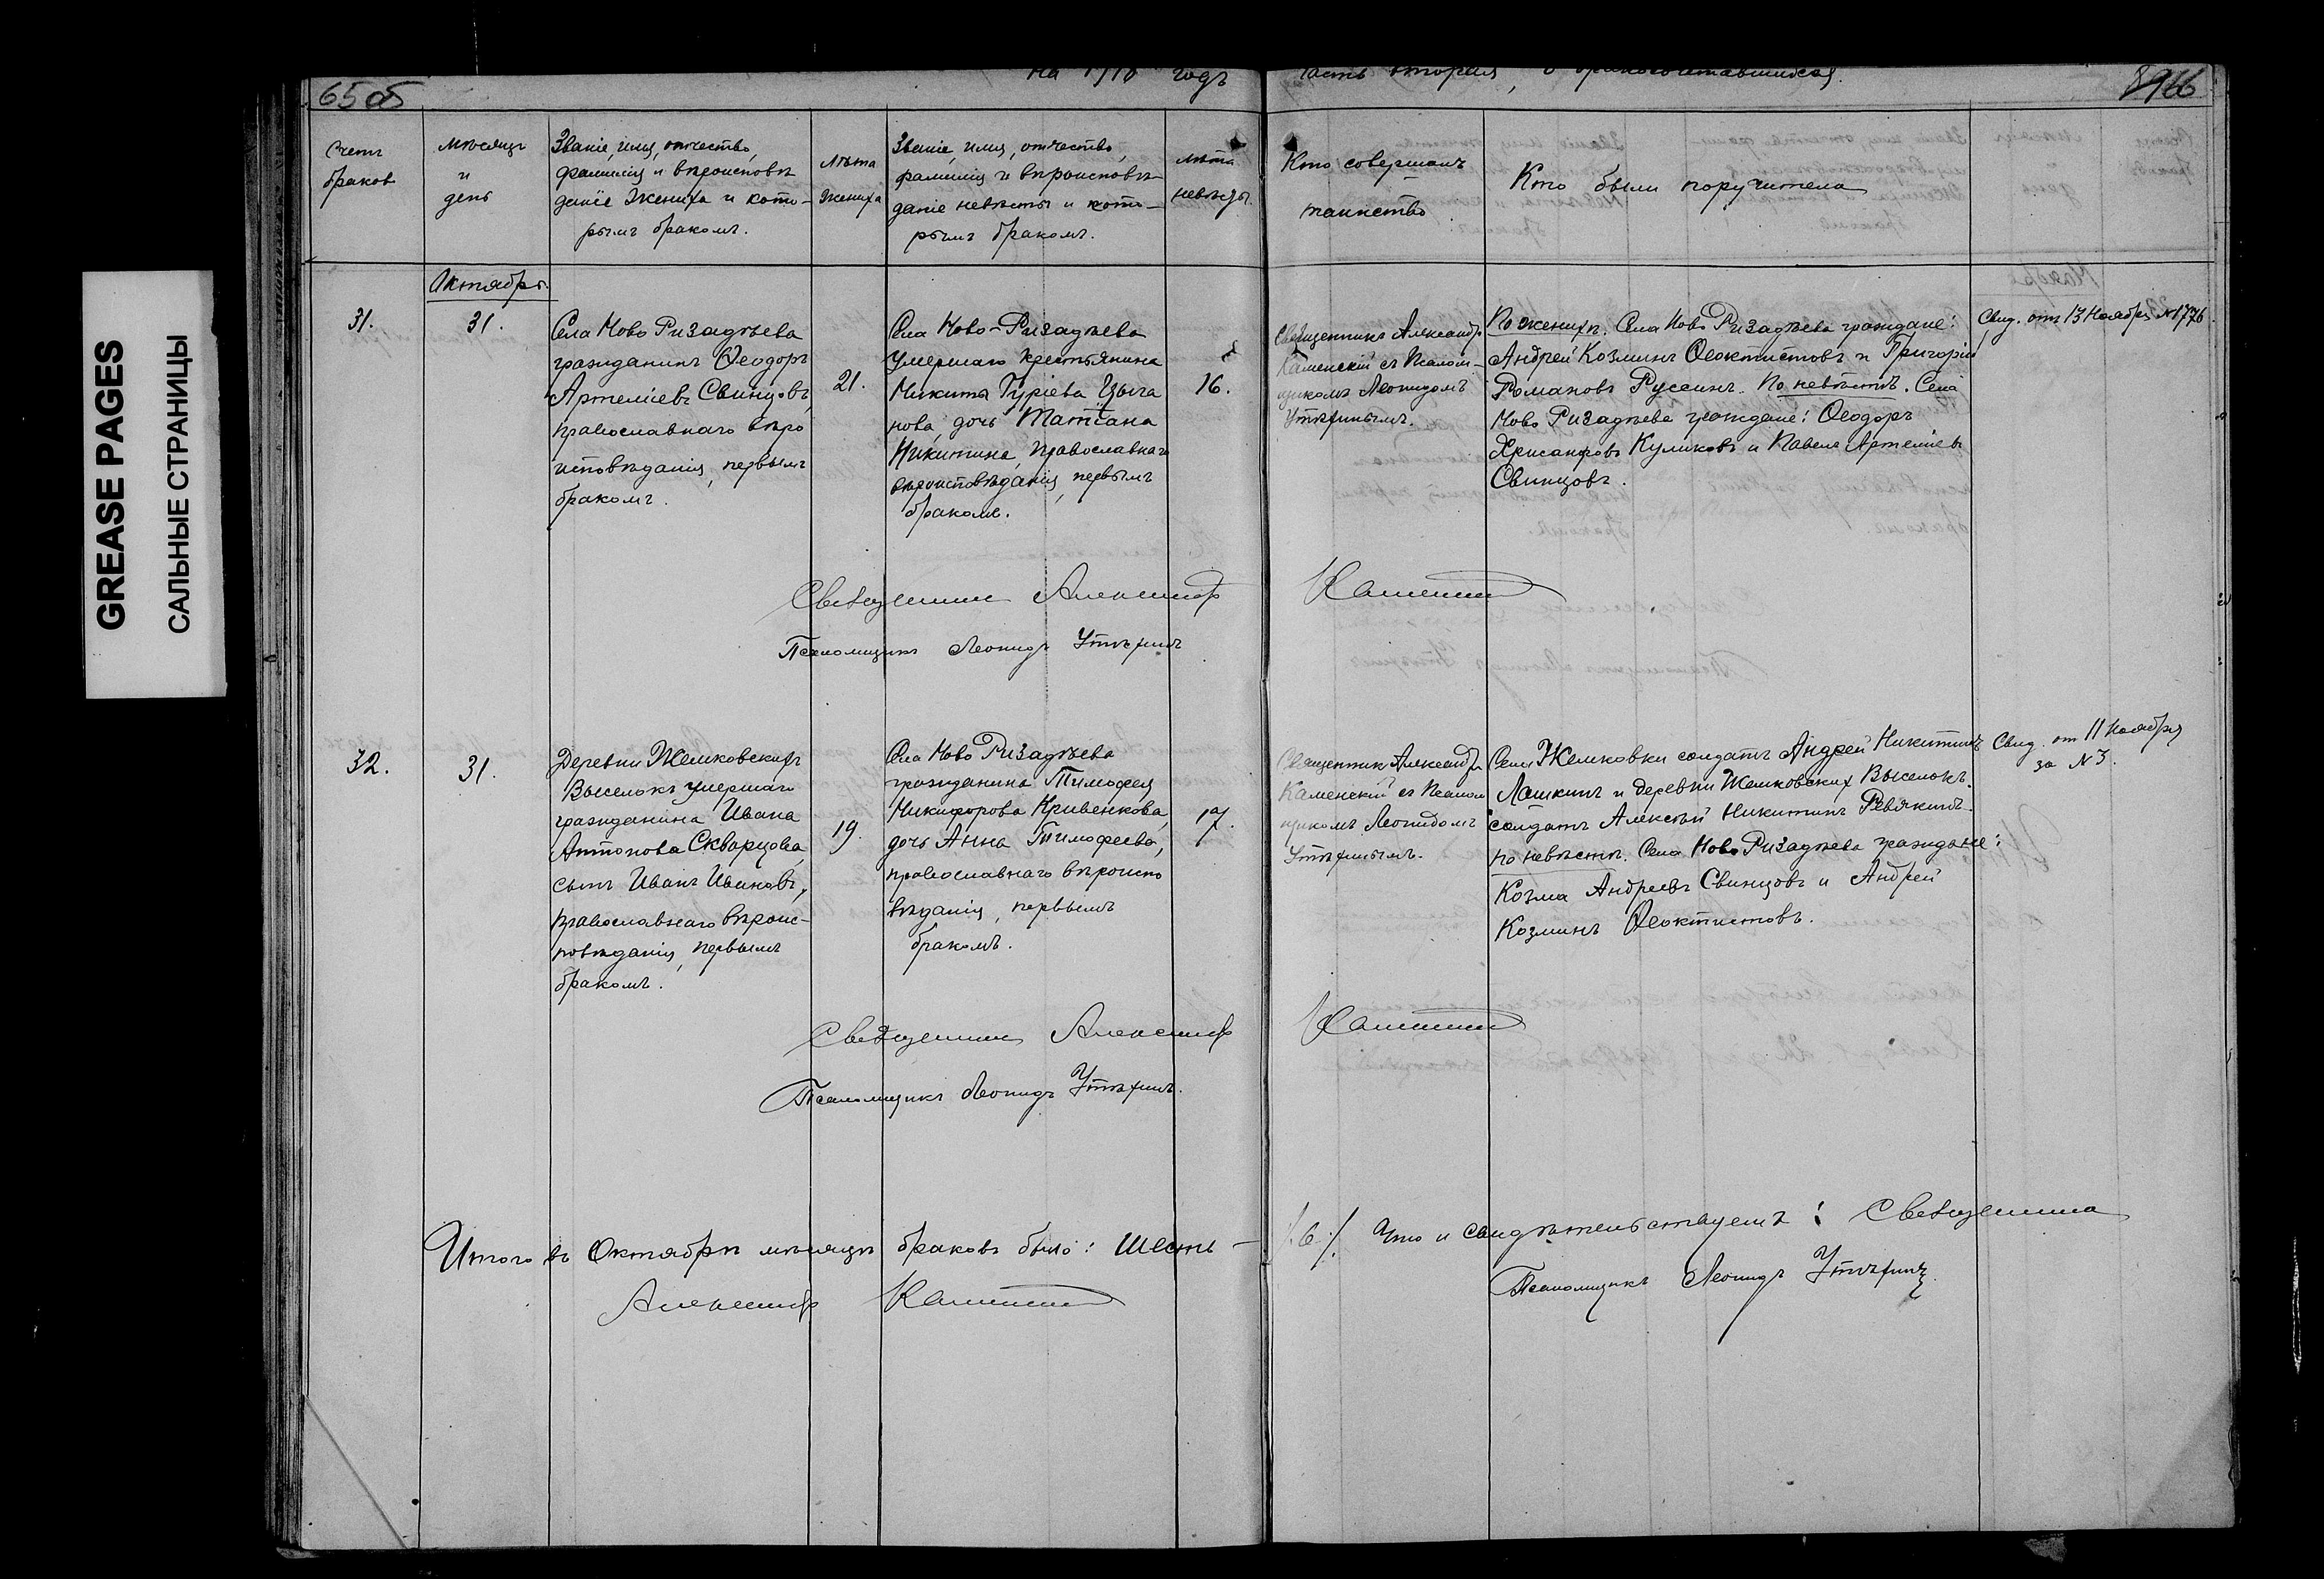 GREASE PAGES
САЛЬНЫЕ СТРАНИЦЫ
65 об
на 1918 годъ
Часть вторая, о бракосочетавшихся.
66
Счетъ
браков
Мѣсяцъ
и
день
Званіе, имя, отчество,
фамилія и вѣроисповѣ
даніе жениха и кото-
рымъ бракомъ.
Лѣта
жениха
Званіе, имя, отчество,
фамилія и вѣроисповѣ
даніе невѣсты и кото-
рымъ бракомъ.
лѣта
невѣсты.
Кто совершалъ
таинство
Кто были поручители
Октябрь.
31.
31.
Села Ново Ризадѣева
гражданинъ Ѳеодоръ
Артеміевъ Свинцовъ,
православнаго вѣро
исповѣданія, первымъ
бракомъ.
21.
Села Ново-Ризадѣева
умершаго крестьянина
Никиты Гуріева Цыга
нова, дочь Татіана
Никитина, православнаго
вѣроисповѣданія, первымъ
бракомъ.
16.
Священникъ Александръ
Каменскій съ Псалом-
щикомъ Леонидомъ
Утѣхинымъ.
По женихѣ. Села Ново Ризадѣева граждане:
Андрей Козминъ Ѳеоктистовъ и Григорій
Романовъ Руссинъ. По невѣстѣ. Села
Ново Ризадѣева граждане: Ѳеодоръ
Хрисанфовъ Куликовъ и Павелъ Артеміевъ
Свинцовъ.
Свид. отъ 13 Ноября №1776
Священникъ Александръ Каменскій
Псаломщикъ Леонидъ Утѣхинъ
32.
31.
Деревни Жемковскихъ
Выселокъ умершаго
гражданина Ивана
Антонова Скварцова,
сынъ Иванъ Ивановъ,
православнаго вѣроис-
повѣданія, первымъ
бракомъ.
19.
Села Ново Ризадѣева
гражданина Тимофея
Никифорова Кривенкова,
дочь Анна Тимофеева,
православнаго вѣроиспо
вѣданія, первымъ
бракомъ.
17.
Священникъ Александръ
Каменскій съ Псалом
щикомъ Леонидомъ
Утѣхинымъ.
Села Жемковки солдатъ Андрей Никитинъ
Лашкинъ и деревни Жемковскихъ Выселокъ
солдатъ Алексѣй Никитинъ Ревякинъ.
по невѣстѣ. Села Ново Ризадѣева граждане:
Козма Андреевъ Свинцовъ и Андрей
Козминъ Ѳеоктистовъ.
Свид. от 11 Ноября
за №3.
Священникъ Александръ Каменскій
Псаломщикъ Леонидъ Утѣхинъ.
Итого въ Октябрѣ мѣсяцѣ браковъ было: Шесть - /.6./. Что и свидѣтельствуемъ: Священникъ
Александръ Каменскій
Псаломщикъ Леонидъ Утѣхинъ.